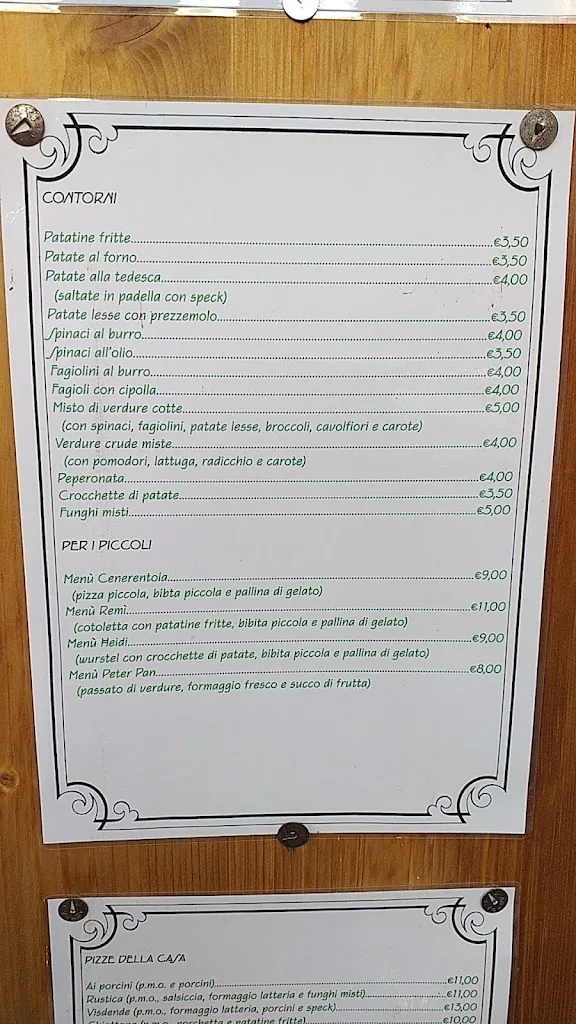 CONTORNI
Patatine fritte...€3,50
Patate al forno...€3,50
Patate alla tedesca...€4,00
(saltate in padella con speck)
Patate lesse con prezzemolo...€3,50
Spinaci al burro...€4,00
Spinaci all'olio...€3,50
Fagiolini al burro...€4,00
Fagioli con cipolla...€4,00
Misto di verdure cotte...€5,00
(con spinaci, fagiolini, patate lesse, broccoli, cavolfiori e carote)
Verdure crude miste...€4,00
(con pomodori, lattuga, radicchio e carote)
Peperonata...€4,00
Crocchette di patate...€3,50
Funghi misti...€5,00
PER I PICCOLI
Menù Cenerentola...€9,00
(pizza piccola, bibta piccola e pallina di gelato)
Menù Remì...€11,00
(cotoletta con patatine fritte, bibita piccola e pallina di gelato)
Menù Heidi...€9,00
(wurstel con crocchette di patate, bibita piccola e pallina di gelato)
Menù Peter Pan...€8,00
(passato di verdure, formaggio fresco e succo di frutta)
PIZZE DELLA CASA
Ai porcini (p.m.o. e porcini)...€11,00
Rustica (p.m.o., salsiccia, formaggio latteria e funghi misti)...€11,00
Visdende (p.m.o., formaggio latteria, porcini e speck)...€13,00
(p.m.o., porchetta e patatine fritte)...€10,00